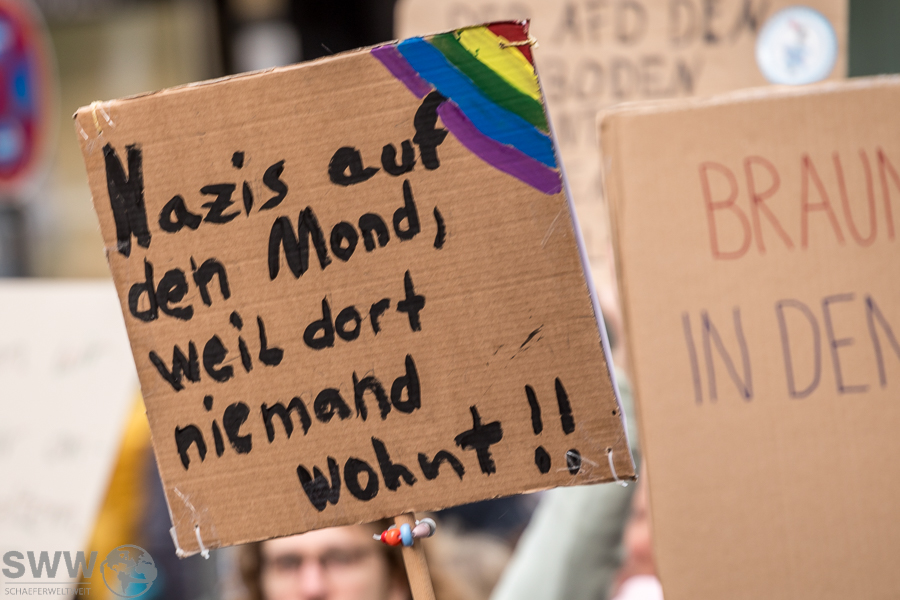 Nazis auf
den Mond,
weil dort
niemand
wohnt!!
AFD DEN
BODEN
BRAUN
IN DEN
SWW
SCHAEFERWELTWEIT